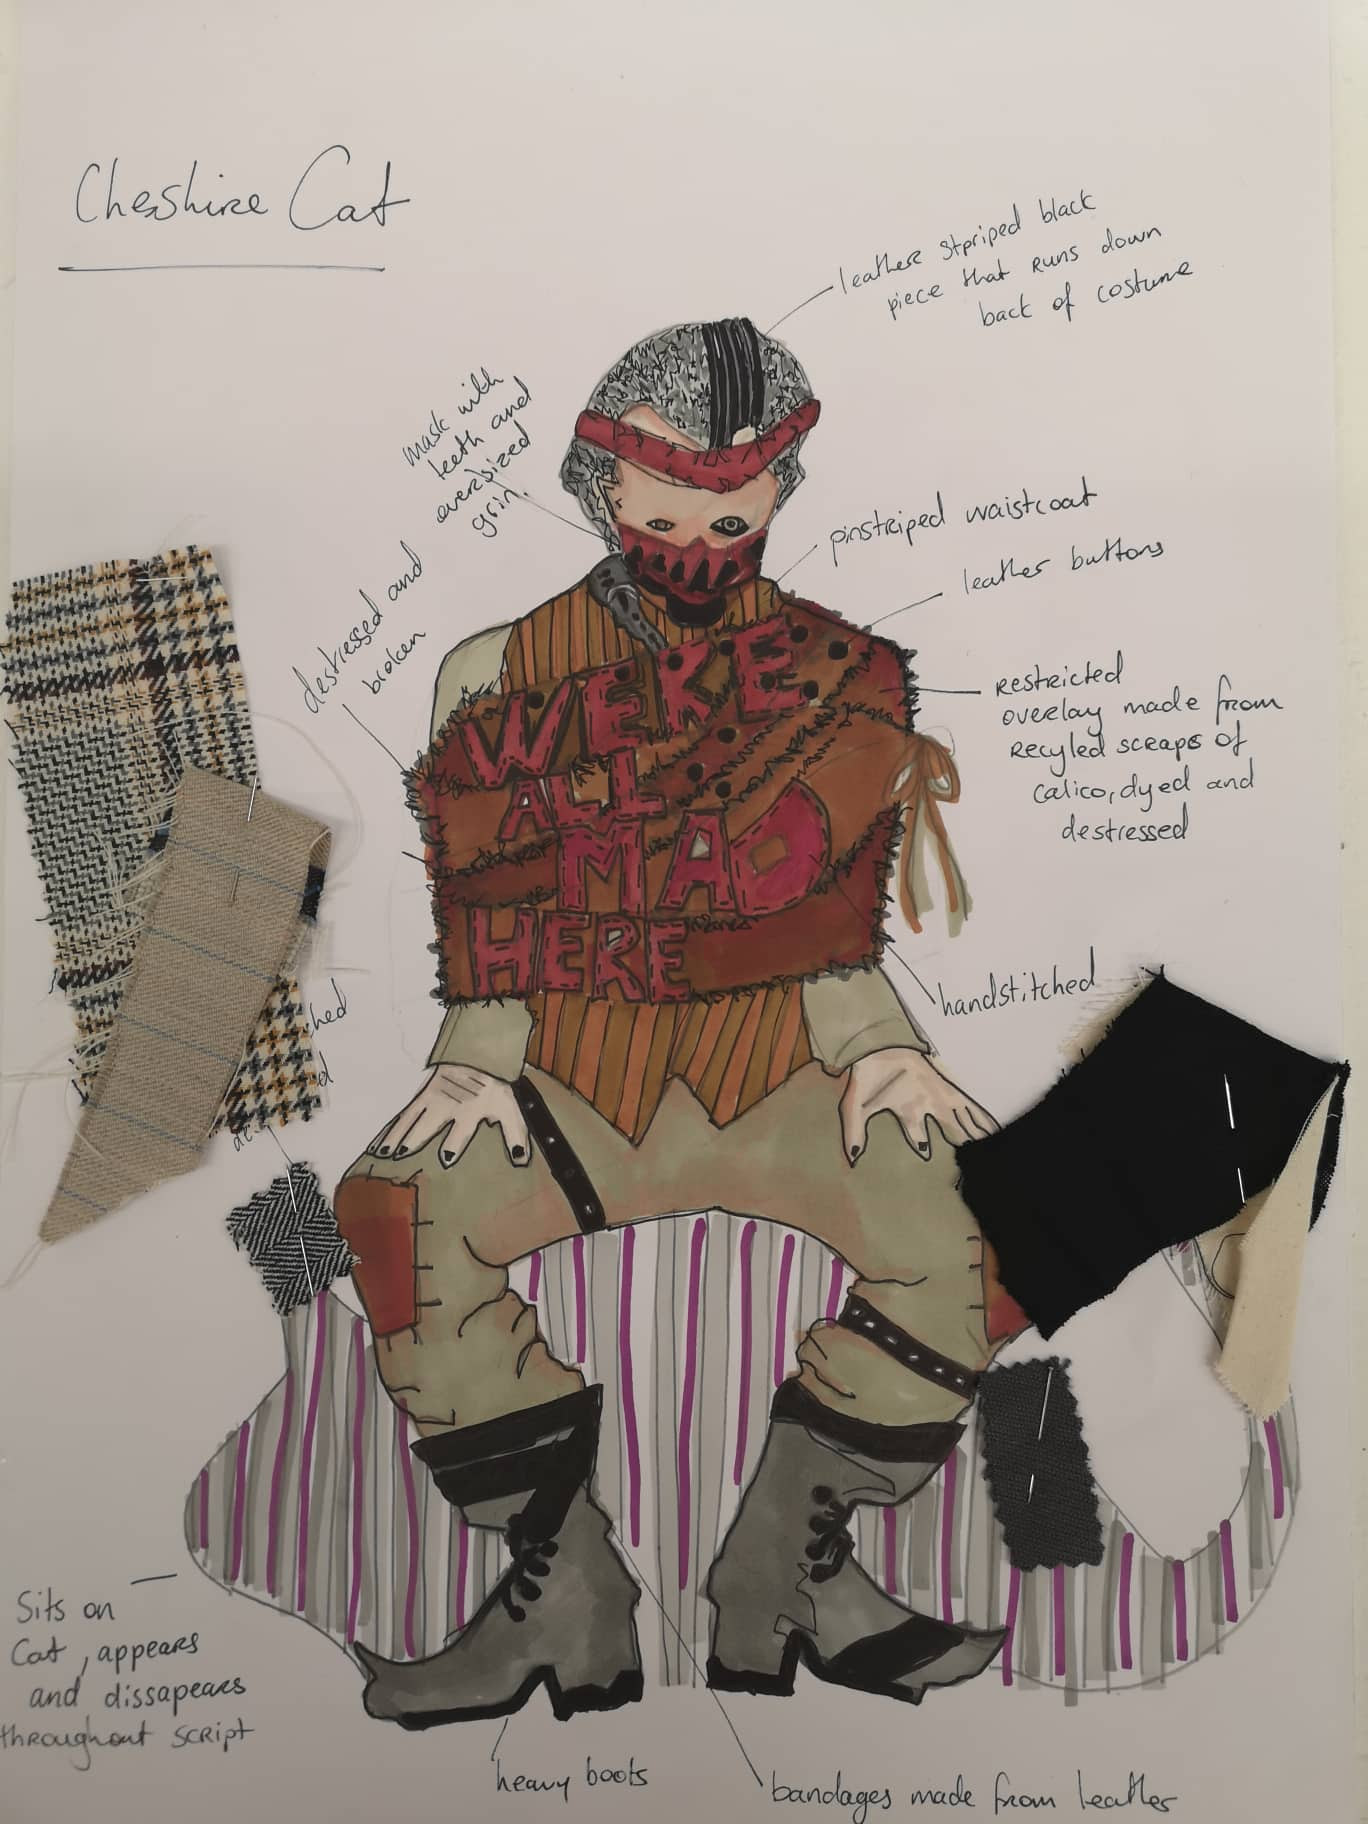 Cheshire Cat
leather stpriped black
piece that runs down
back of costume
mask with
teeth and
oversized
grin.
pinstriped waistcoat
leather buttons
destressed and
broken
restricted
overlay made from
recyled scraps of
calico, dyed and
destressed
WE'RE
ALL
MAD
HERE
handstitched
hed
d
de
Sits on
Cat, appears
and dissapears
throughout script
heavy boots
bandages made from leather